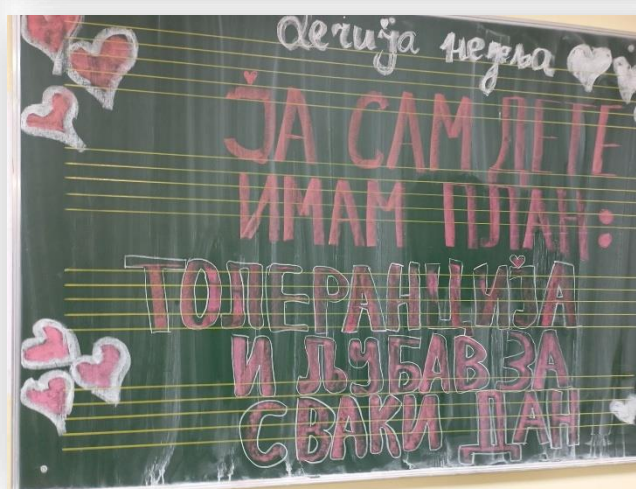 Дечија недеља
ЈА САМ ДЕТЕ
ИМАМ ПЛАН:
ТОЛЕРАНЦИЈА
И ЉУБАВ ЗА
СВАКИ ДАН